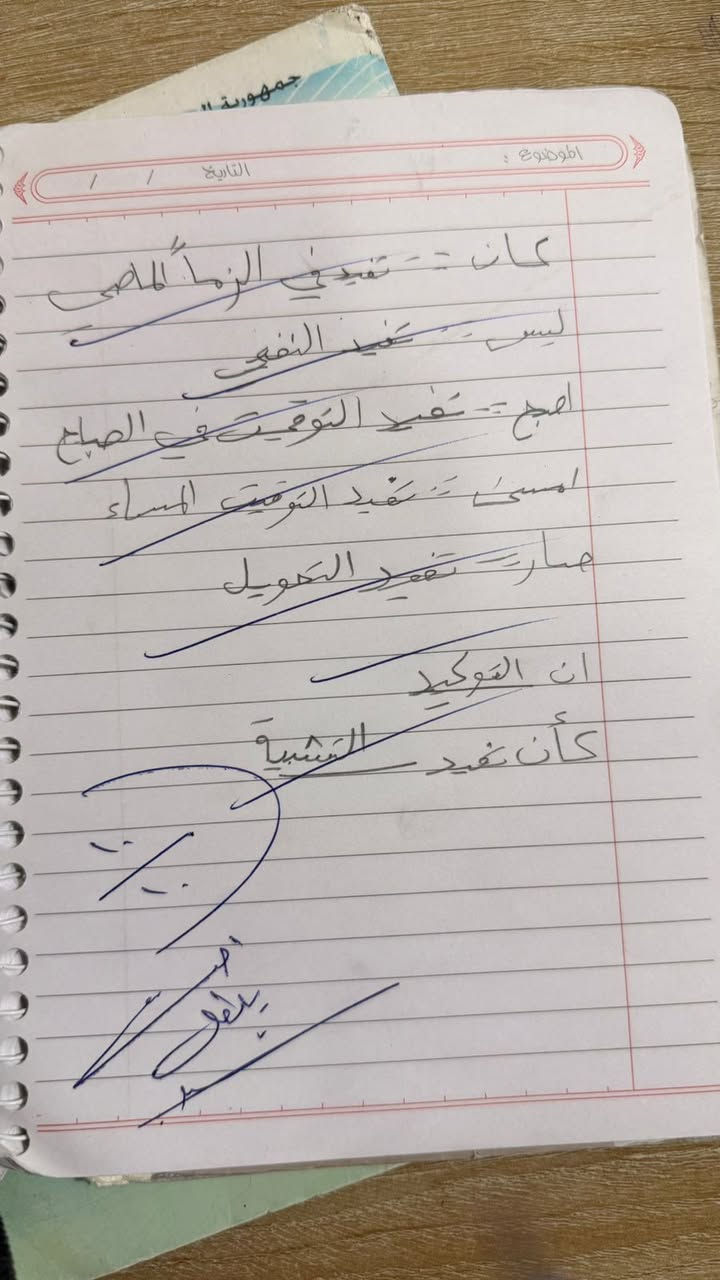 جمهورية
الموضوع :
التاريخ / /
كان == تفيد في الزماً الماضي
ليس == تفيد النفي
اصبح == تفيد التوقيت في الصباح
امسى == تفيد التوقيت المساء
صار == تفيد التحويل
ان التوكيد
كأن تفيد التشبية